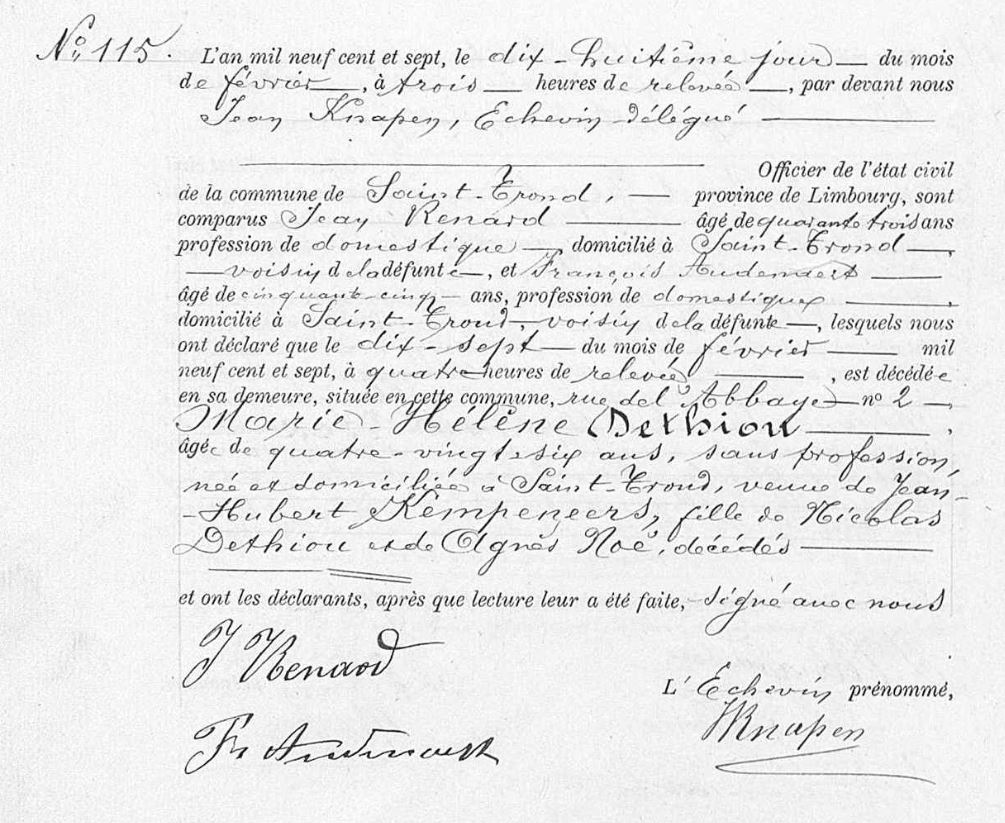 No 115.
L'an mil neuf cent et sept, le dix-huitième jour — du mois
de février —, à trois — heures de relevée —, par devant nous
Jean Knapen, Echevin délégué —
— Officier de l'état civil
de la commune de Saint-Trond, — province de Limbourg, sont
comparus Jean Renard — âgé de quarante trois ans
profession de domestique —, domicilié à Saint-Trond —,
— voisin de la défunte —, et François Audenaert —
âgé de cinquante-cinq — ans, profession de domestique —,
domicilié à Saint-Trond, voisin de la défunte —, lesquels nous
ont déclaré que le dix-sept — du mois de février — mil
neuf cent et sept, à quatre heures de relevée —, est décédée
en sa demeure, située en cette commune, rue de l'Abbaye — no 2 —,
Marie-Hélène Dethiou —,
âgée de quatre-vingt-six ans, sans profession,
née et domiciliée à Saint-Trond, veuve de Jean-
-Hubert Kempeneers, fille de Nicolas
Dethiou et de Agnès Noé, décédés —
et ont les déclarants, après que lecture leur a été faite, signé avec nous
J Renard
L'Echevin prénommé,
JKnapen
Fr Audenaert